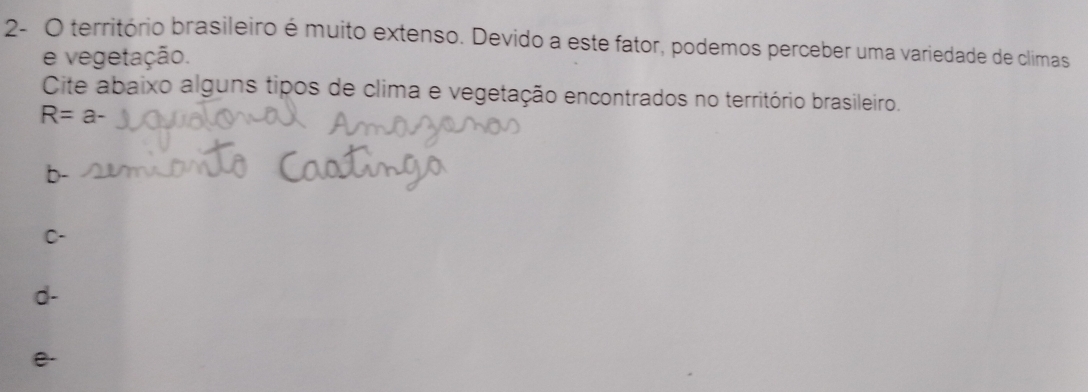 2- O território brasileiro é muito extenso. Devido a este fator, podemos perceber uma variedade de climas
e vegetação.
Cite abaixo alguns tipos de clima e vegetação encontrados no território brasileiro.
R= a- equatorial Amazonas
b- semianto Caatinga
c-
d-
e-